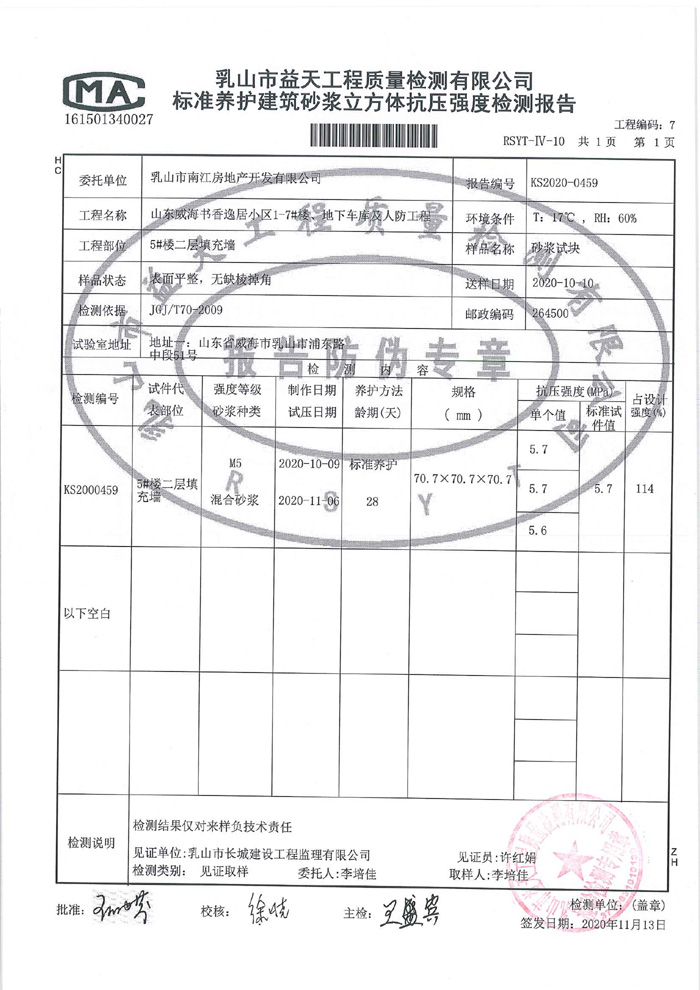 CMA
161501340027
乳山市益天工程质量检测有限公司
标准养护建筑砂浆立方体抗压强度检测报告
工程编码：7
RSYT-IV-10 共 1 页 第 1 页
HC
委托单位 乳山市南江房地产开发有限公司 报告编号 KS2020-0459
工程名称 山东威海书香逸居小区1-7#楼、地下车库及人防工程 环境条件 T：17℃，RH：60%
工程部位 5#楼二层填充墙 样品名称 砂浆试块
样品状态 表面平整，无缺棱掉角 送样日期 2020-10-10
检测依据 JGJ/T70-2009 邮政编码 264500
试验室地址 地址一：山东省威海市乳山市浦东路
中段51号
检 测 内 容
检测编号 试件代表部位 强度等级 砂浆种类 制作日期 试压日期 养护方法 龄期(天) 规格（mm） 抗压强度(MPa) 单个值 标准试件值 占设计强度(%)
KS2000459 5#楼二层填充墙 M5 混合砂浆 2020-10-09 2020-11-06 标准养护 28 70.7×70.7×70.7 5.7 5.7 5.6 5.7 114
以下空白
检测说明
检测结果仅对来样负技术责任
见证单位:乳山市长城建设工程监理有限公司 见证员:许红娟
检测类别： 见证取样 委托人:李培佳 取样人:李培佳
ZH
批准： 校核： 主检：王盛宾 检测单位：(盖章)
签发日期：2020年11月13日
乳山市益天工程质量检测有限公司
报告防伪专章
RSYT